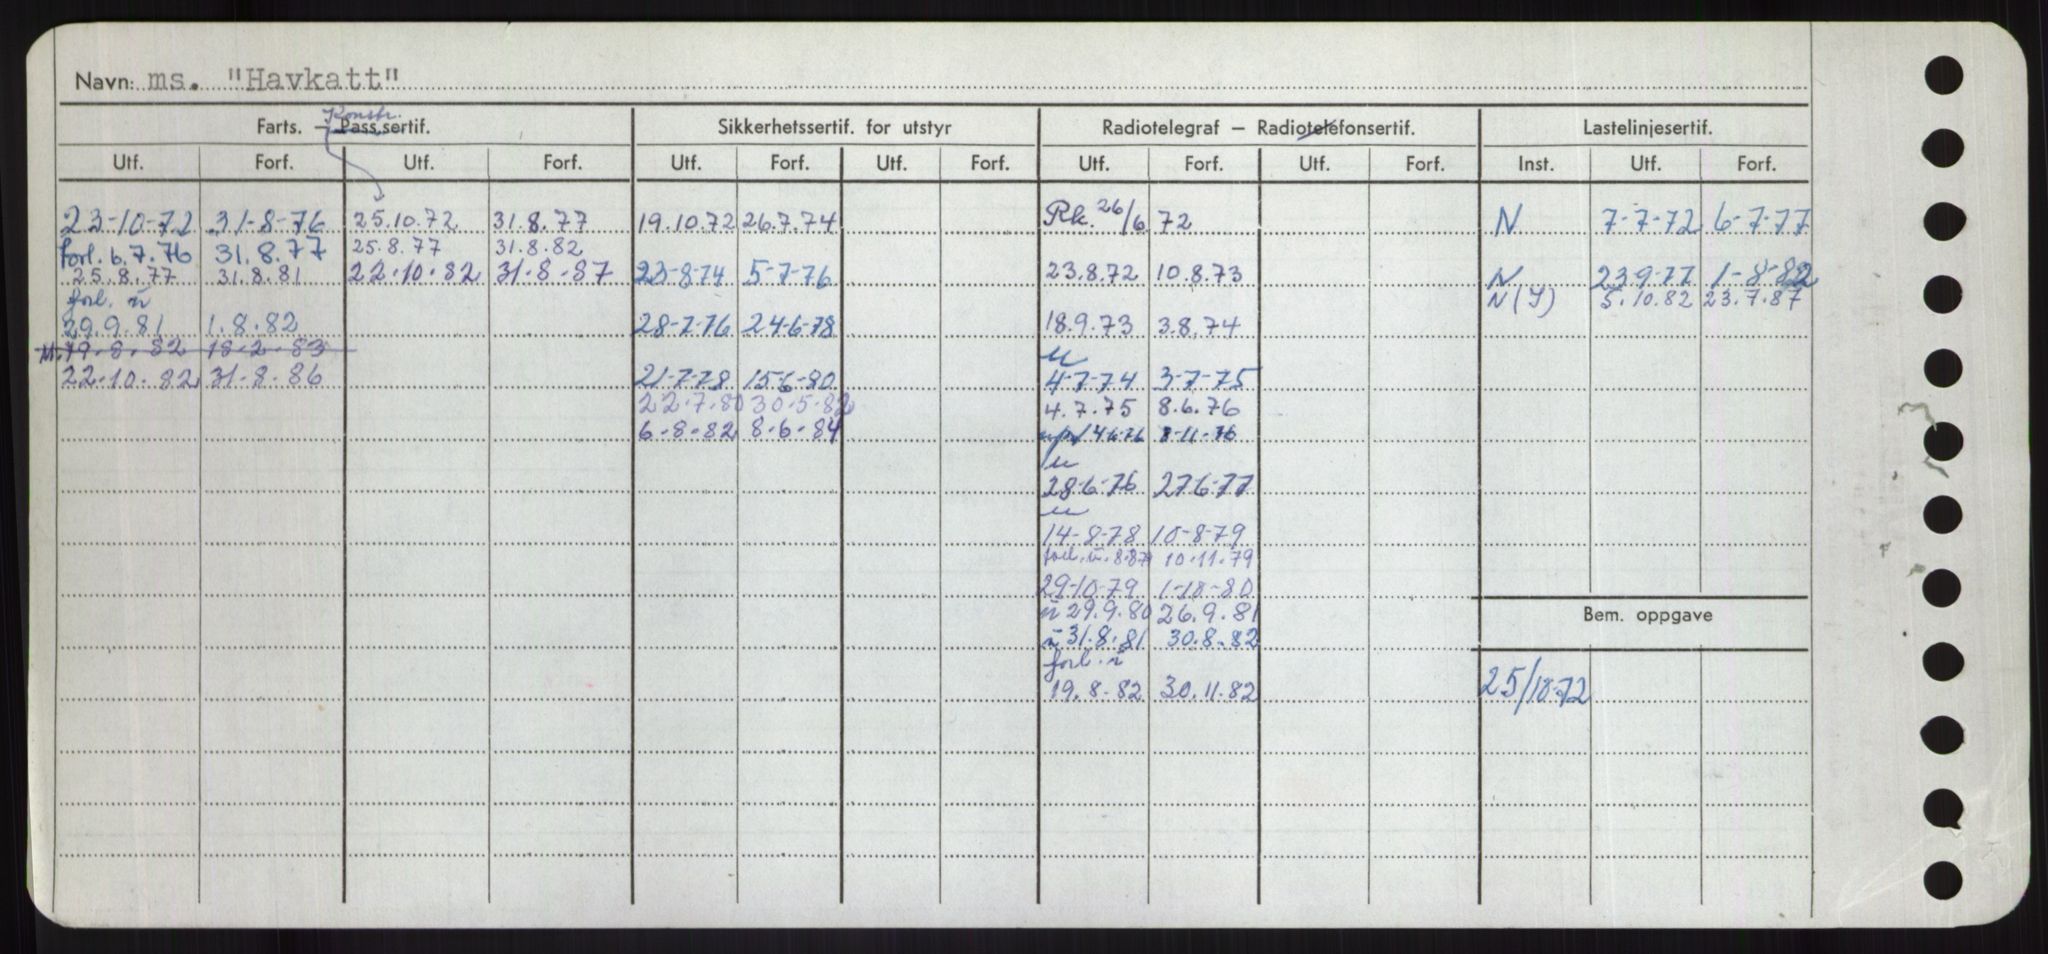 Navn: ms. "Havkatt"
Konstr.
Farts. — Pass.sertif. Sikkerhetssertif. for utstyr Radiotelegraf — Radiotelefonsertif. Lastelinjesertif.
Utf. Forf. Utf. Forf. Utf. Forf. Utf. Forf. Utf. Forf. Utf. Forf. Inst. Utf. Forf.
23-10-72 31-8-76 25.10.72 31.8.77 19.10.72 26.7.74 Rk. 26/6 72 N 7-7-72 6-7-77
forl. 6.7.76 31.8.77 25.8.77 31.8.82
25.8.77 31.8.81 22.10.82 31.8.87 23-8-74 5-7-76 23.8.72 10.8.73 N 23-9-77 1-8-82
forl. N(I) 5.10.82 23.7.87
29.9.81 1.8.82 28-7-76 24-6-78 18.9.73 3.8.74
M. 19.8.82 18.2.83
22.10.82 31.8.86 21-7-78 15-6-80 4-7-74 3-7-75
22.7.80 30.5.82 4.7.75 8.6.76
6.8.82 8.6.84 8-11-76
28-6-76 27-6-77
14-8-78 10-8-79
forl. 10.11.79
29-10-79 1-10-80
29.9.80 26.9.81
31.8.81 30.8.82
Bem. oppgave
forl.
19.8.82 30.11.82 25/10-72